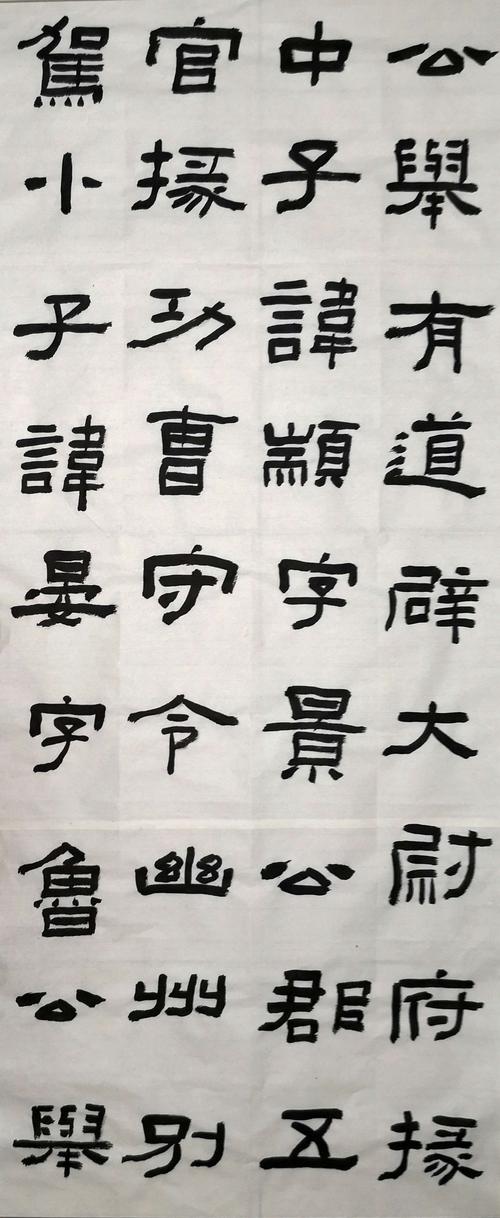 公舉有道辟大尉府掾
中子諱顓字景公郡五
官掾功曹守令幽州別
駕小子諱晏字魯公舉